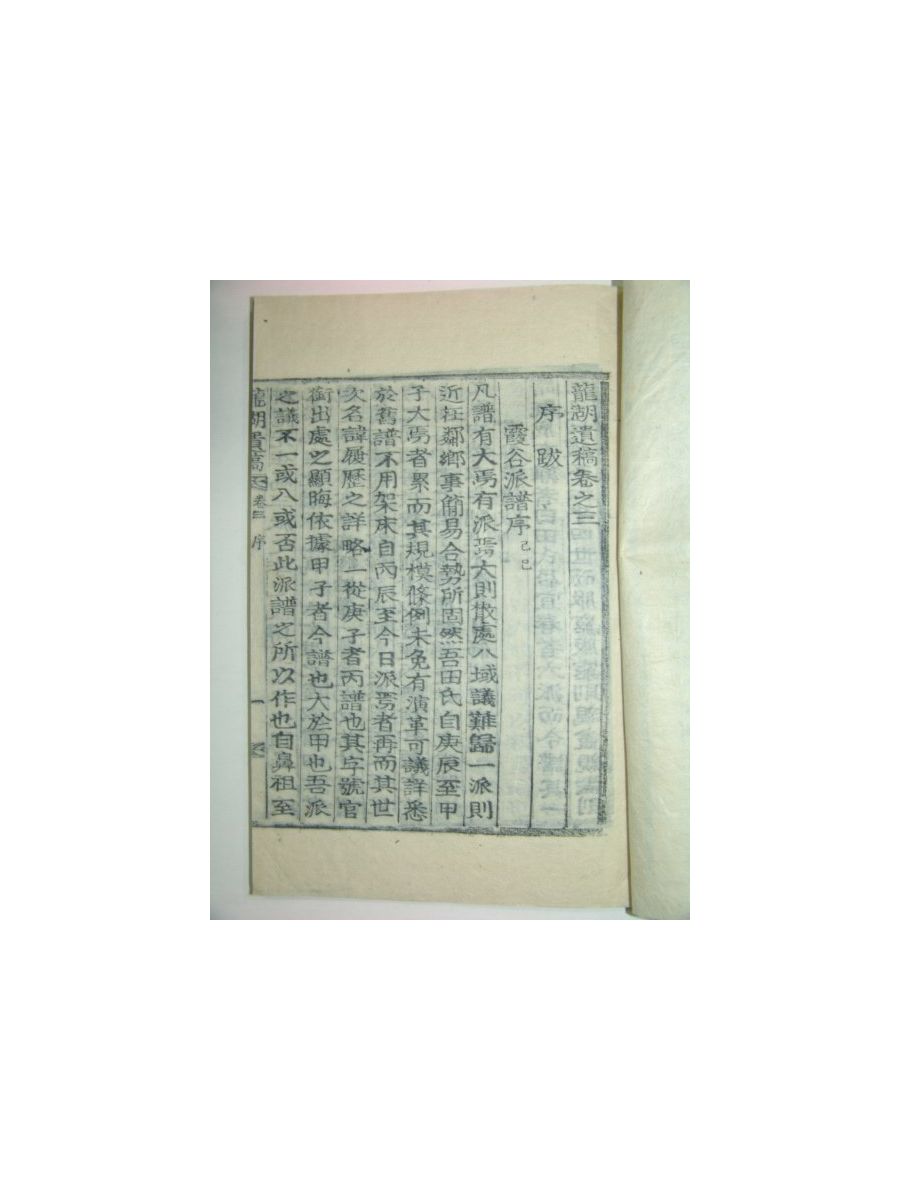 龍湖遺稿卷之三
序跋
霞谷派譜序 己巳
凡譜有大焉有派焉大則散處八域議難歸一派則
近在鄰鄕事簡易合勢所固然吾田氏自庚辰至甲
子大焉者累而其規模條例未免有演革可議詳悉
於舊譜不用架床自丙辰至今日派焉者再而其世
次名諱履歷之詳略一從庚子者丙譜也其字號官
銜出處之顯晦依據甲子者今譜也大於甲也吾派
之議不一或入或否此派譜之所以作也自鼻祖至
龍湖遺稿 卷三 序 一